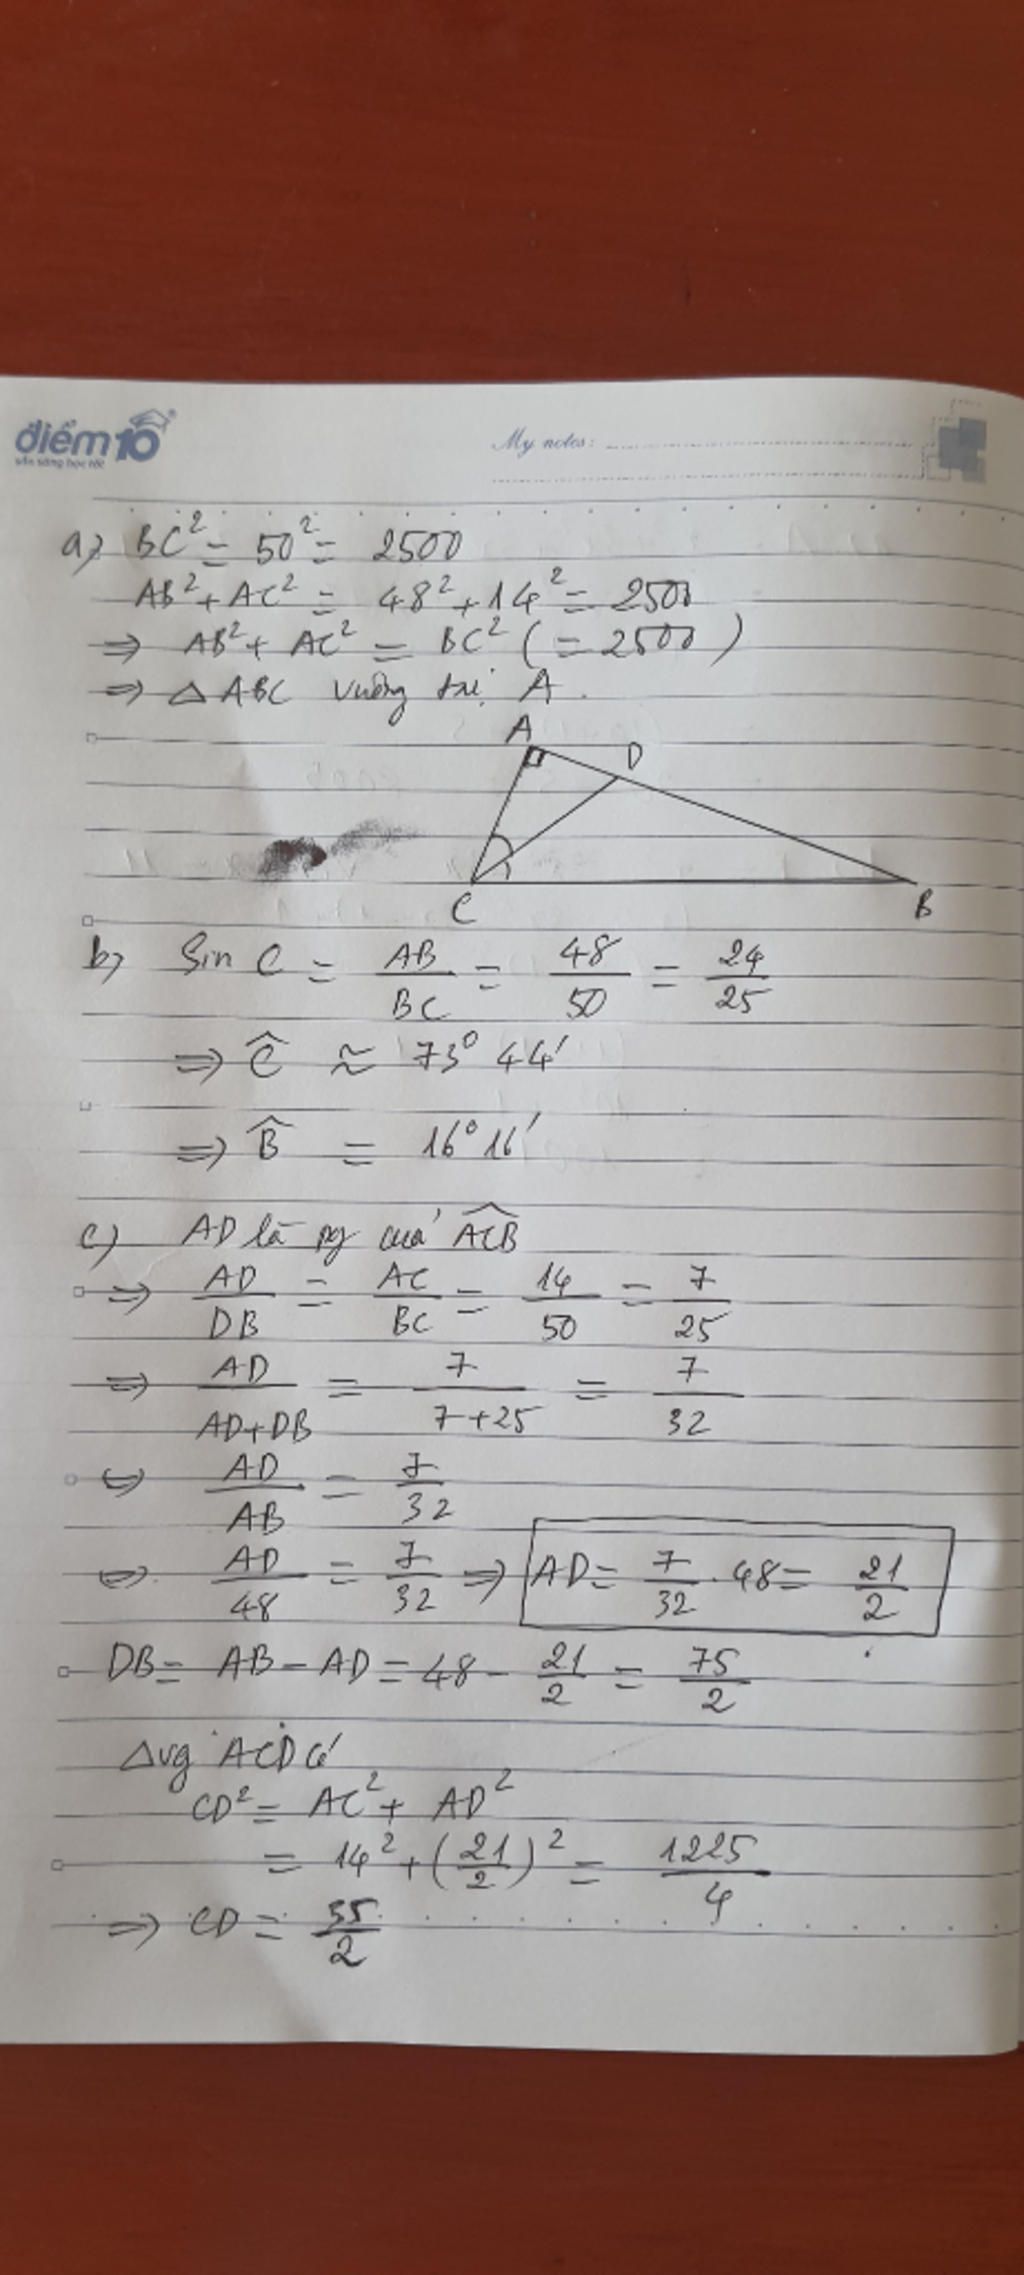 điểm10
sẵn sàng học tốt
My notes:
a) BC² = 50² = 2500
AB² + AC² = 48² + 14² = 2500
⇒ AB² + AC² = BC² (= 2500)
⇒ △ ABC vuông tại A.
A
D
C
B
b) Sin C = AB/BC = 48/50 = 24/25
⇒ Ĉ ≈ 73° 44'
⇒ B̂ = 16° 16'
c) AD là pg của ACB
⇒ AD/DB = AC/BC = 14/50 = 7/25
⇒ AD/(AD+DB) = 7/(7+25) = 7/32
⇔ AD/AB = 7/32
⇔ AD/48 = 7/32 ⇒ AD = 7/32 . 48 = 21/2
DB = AB - AD = 48 - 21/2 = 75/2
△vg ACD có
CD² = AC² + AD²
= 14² + (21/2)² = 1225/4
⇒ CD = 35/2